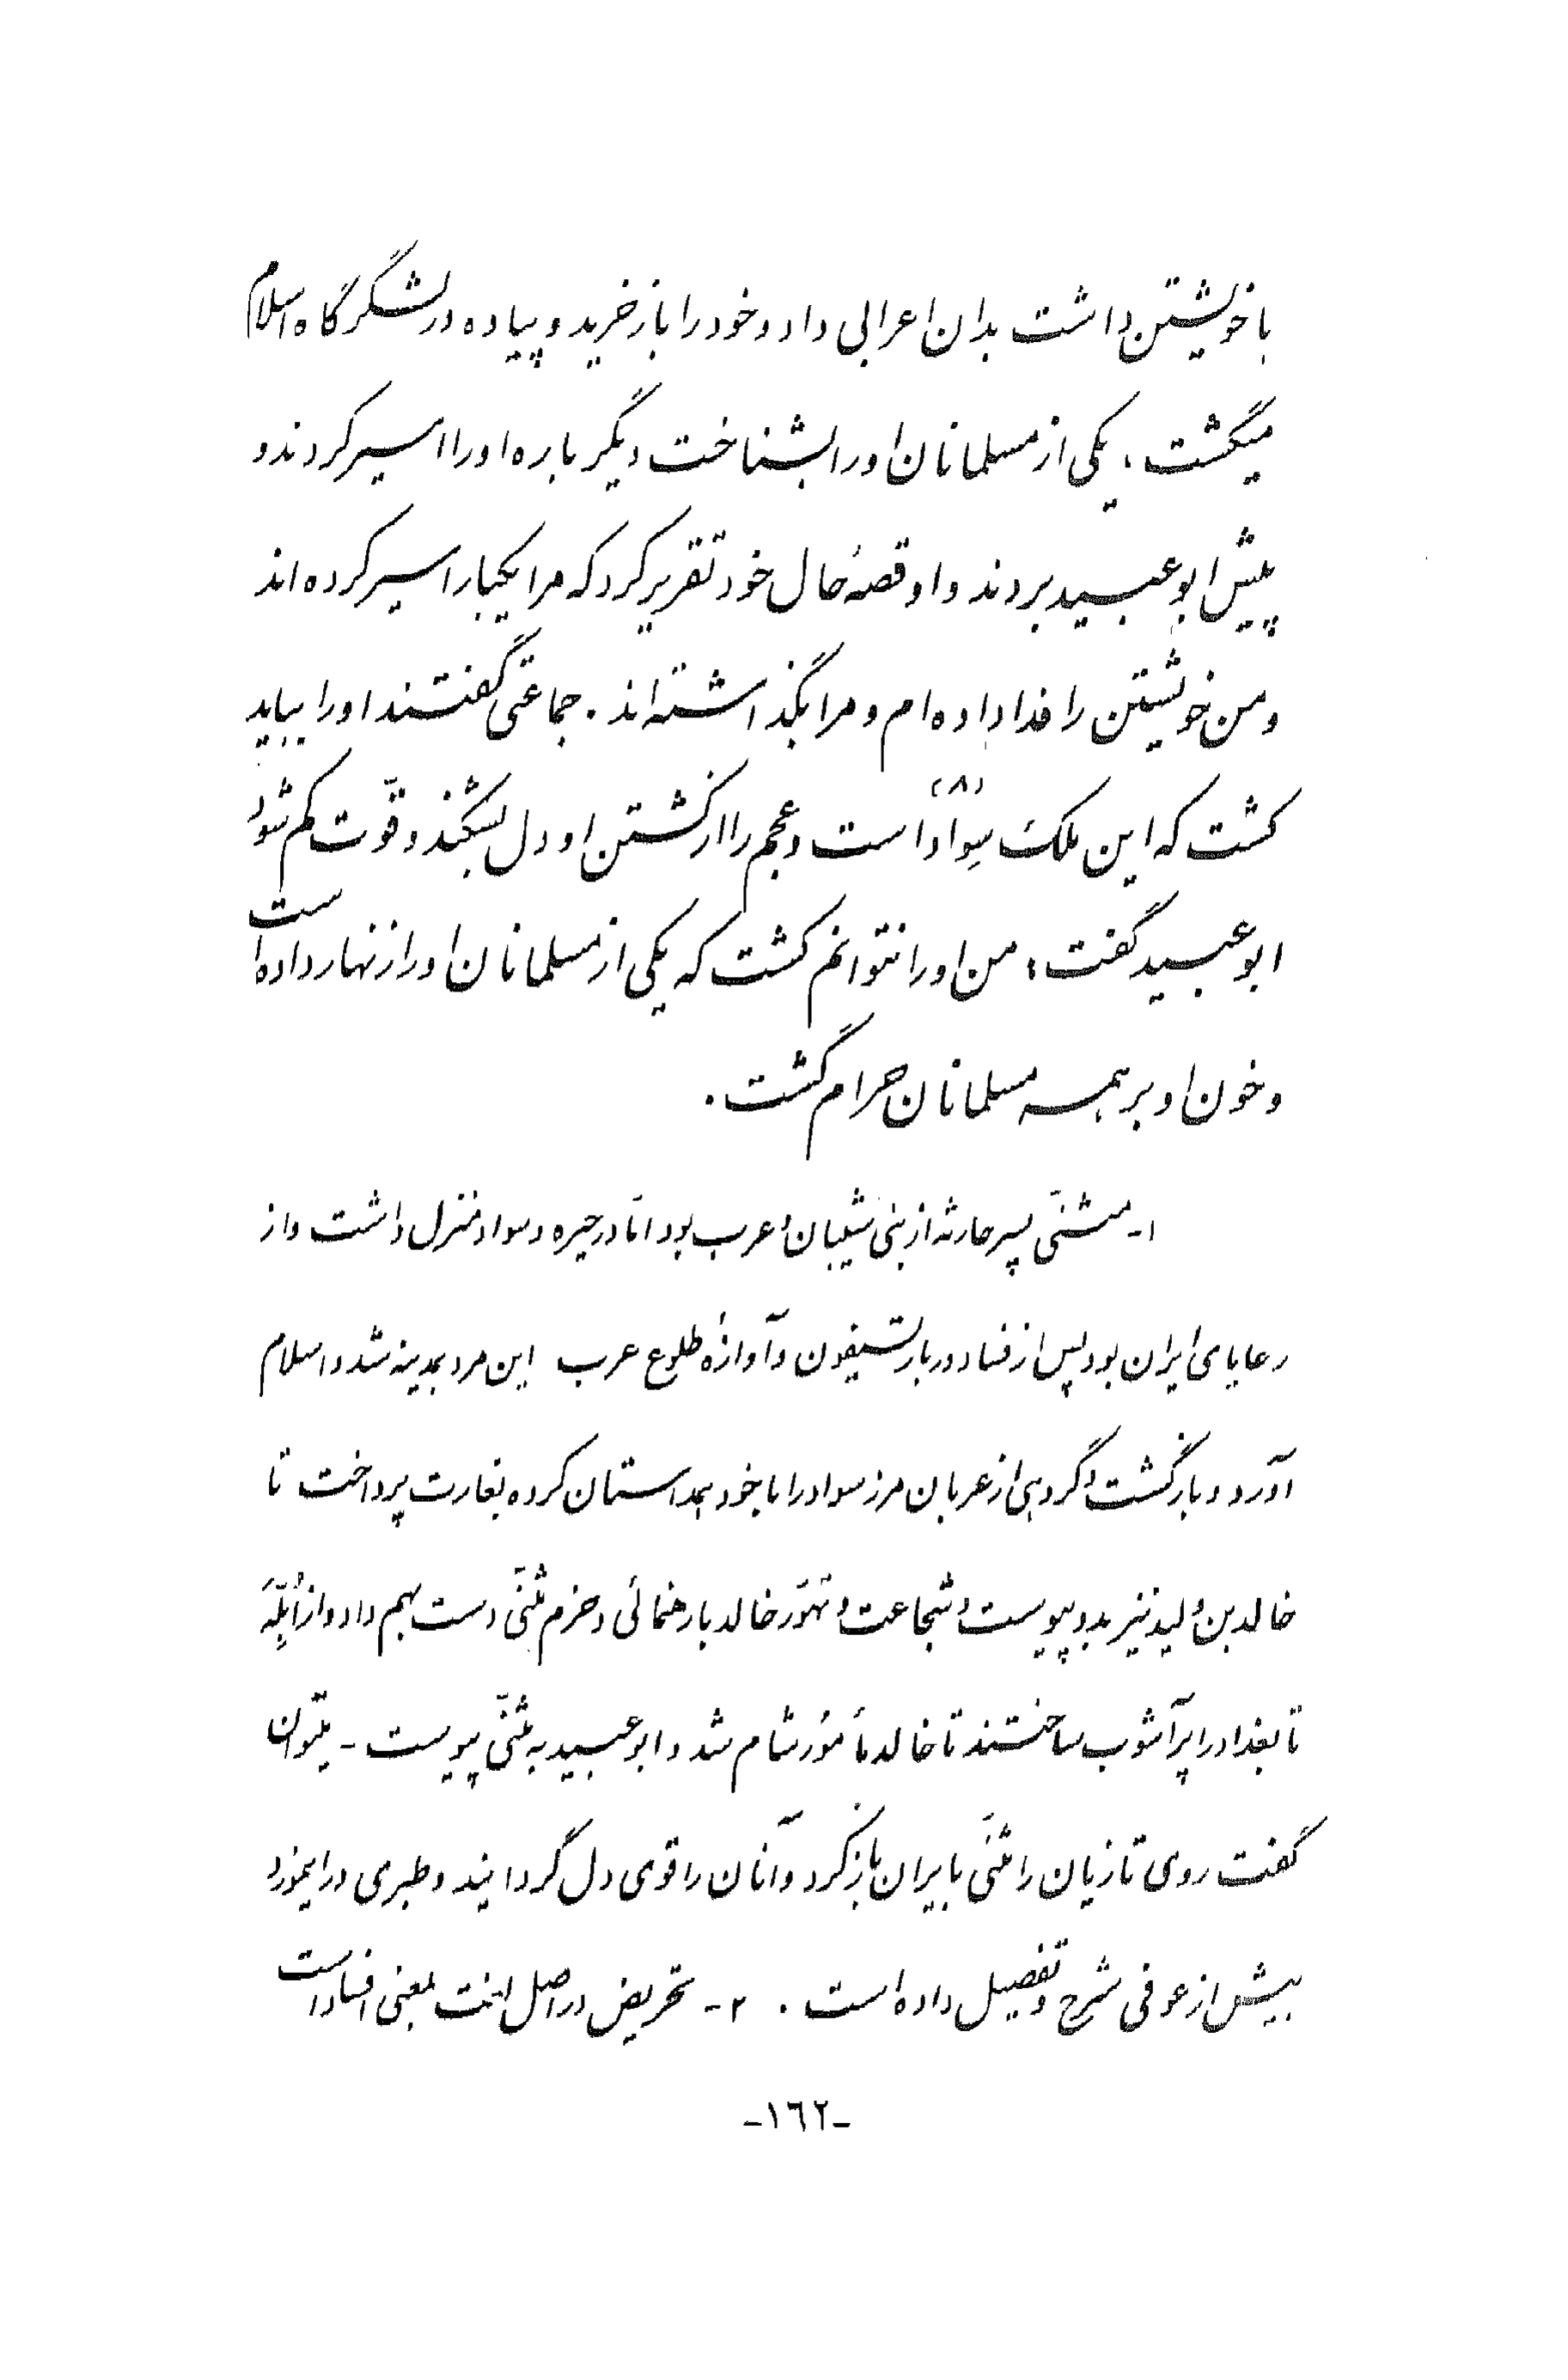 باخویشتن داشت بدان اعرابی داد و خود را باز خرید و پیاده در لشگرگاه اسلام
میگشت، یکی از مسلمانان او را بشناخت دیگر باره او را اسیر کردند و
پیش ابوعبید بردند و او قصهٔ حال خود تقریر کرد که مرا یکبار اسیر کرده‌اند
و من خویشتن را فدا داده‌ام و مرا بگذاشته‌اند. جماعتی گفتند او را بباید
کشت که این ملک سواد (۸) است و عجم را از کشتن او دل بشکند و قوّت کم شود
ابوعبید گفت: من او را نتوانم کشت که یکی از مسلمانان او را زنهار داده است
و خون او بر همه مسلمانان حرام گشت.
۱- مثنّی پسر حارثه از بنی شیبان و عرب بود امّا در حیره و سواد منزل داشت و از
رعایای ایران بود پس از فساد دربار تسیفون و آوازهٔ طلوع عرب این مرد بمدینه شد و اسلام
آورد و بازگشت و گروهی از عربان مرز سواد را با خود همداستان کرده بغارت پرداخت تا
خالد بن ولید نیز بدو پیوست و شجاعت و تهوّر خالد با رهنمائی و حزم مثنّی دست بهم داد و از اُبلّه
تا بغداد را پرآشوب ساختند تا خالد مأمور شام شد و ابوعبید به مثنّی پیوست - میتوان
گفت روی تازیان را مثنّی بایران باز کرد و آنان را قوی دل گردانید و طبری در اینمورد
بیش از عوفی شرح و تفصیل داده است. ۲- تحریض در اصل لغت بمعنی افساد است
-۱٦۲-